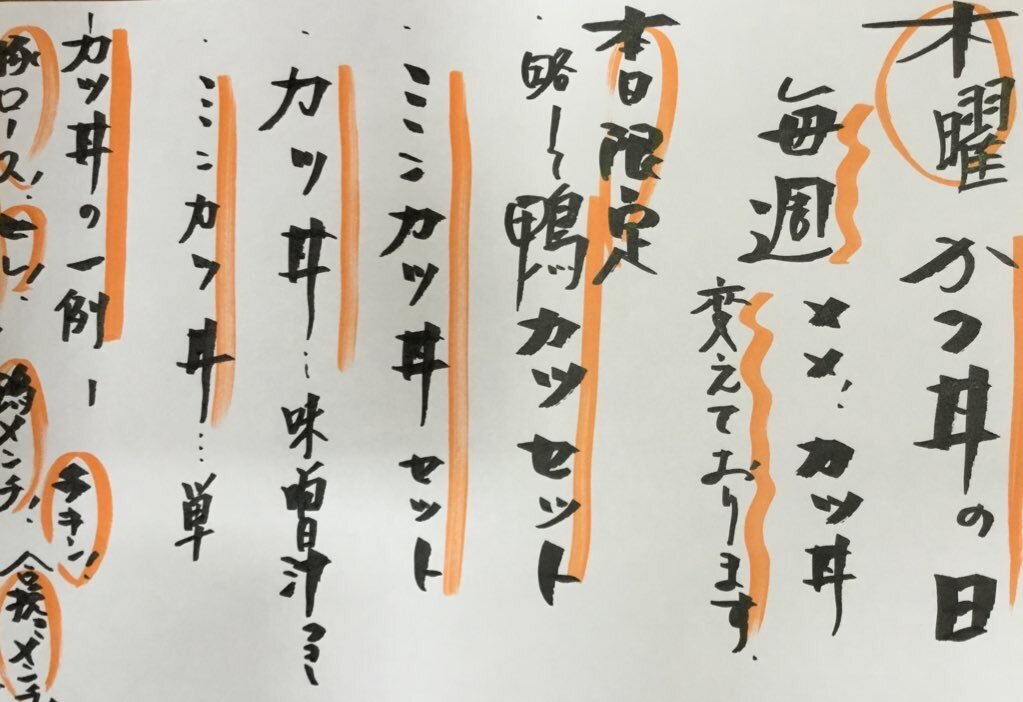 木曜 かつ丼の日
毎週 ××、カツ丼
変えております.
本日限定
・略〜鴨カツセット
・ミニカツ丼セット
・カツ丼…味噌汁つき
・ミニカツ丼…単
-カツ丼の一例-
チキン!
豚ロース! ヒレ! 鴨メンチ! 合挽メンチ